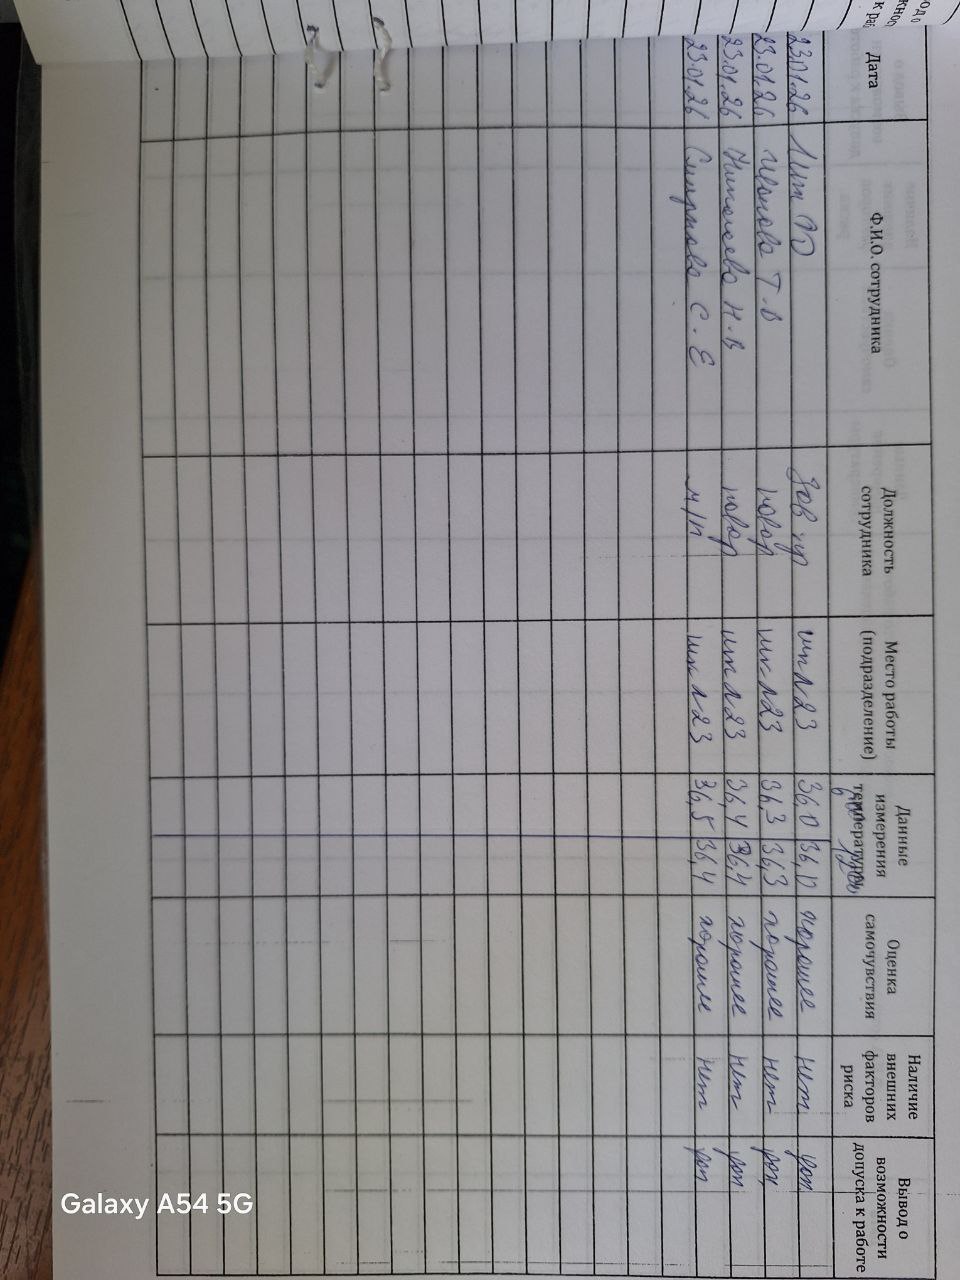 Дата Ф.И.О. сотрудника Должность сотрудника Место работы (подразделение) Данные измерения температуры Оценка самочувствия Наличие внешних факторов риска Вывод о возможности допуска к работе
23.01.26 Зав пр шк N23 36,0 36,0 хорошее нет доп
23.01.26 Иванова Т.В повар шк N23 36,3 36,3 хорошее нет доп
23.01.26 Николаева Н.В повар шк N23 36,4 36,4 хорошее нет доп
23.01.26 Смирнова С.Е м/п шк N23 36,5 36,4 хорошее нет доп
Galaxy A54 5G